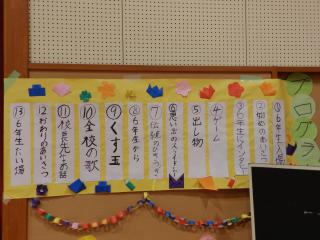 プログラ
①6年生入場
②始めのあいさつ
③6年生にインタビュー
④ゲーム
⑤出し物
⑥思い出のスライドショー
⑦伝統のひきつぎ
⑧6年生から
⑨くす玉
⑩全校の歌
⑪校長先生のお話
⑫おわりのあいさつ
⑬6年生たい場